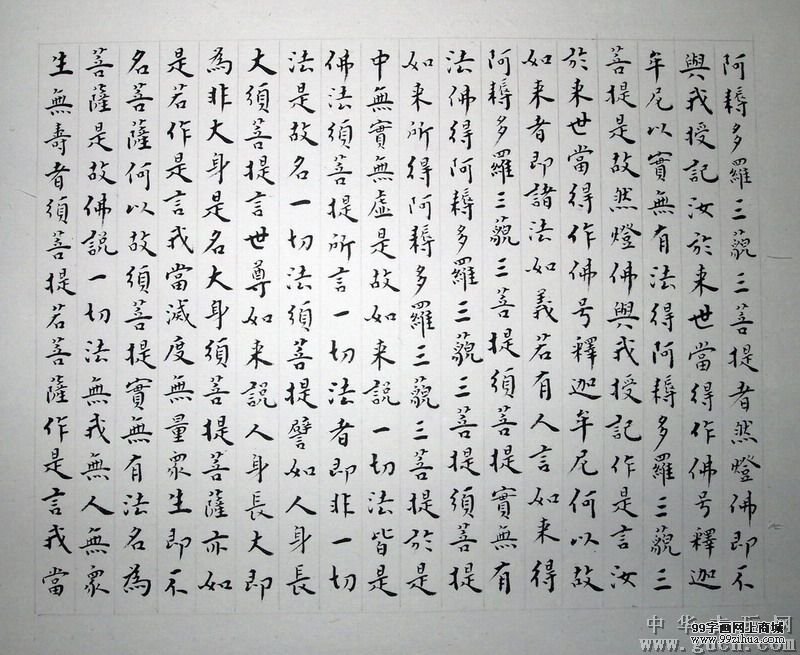 阿耨多羅三藐三菩提者然燈佛即不
與我授記汝於来世當得作佛号釋迦
牟尼以實無有法得阿耨多羅三藐三
菩提是故然燈佛與我授記作是言汝
於来世當得作佛号釋迦牟尼何以故
如来者即諸法如義若有人言如来得
阿耨多羅三藐三菩提須菩提實無有
法佛得阿耨多羅三藐三菩提須菩提
如来所得阿耨多羅三藐三菩提於是
中無實無虛是故如来説一切法皆是
佛法須菩提所言一切法者即非一切
法是故名一切法須菩提譬如人身長
大須菩提言世尊如来説人身長大即
為非大身是名大身須菩提菩薩亦如
是若作是言我當滅度無量衆生即不
名菩薩何以故須菩提實無有法名為
菩薩是故佛説一切法無我無人無衆
生無壽者須菩提若菩薩作是言我當
中华古玩网
www.gucn.com
99字画网上商城
www.99zihua.com